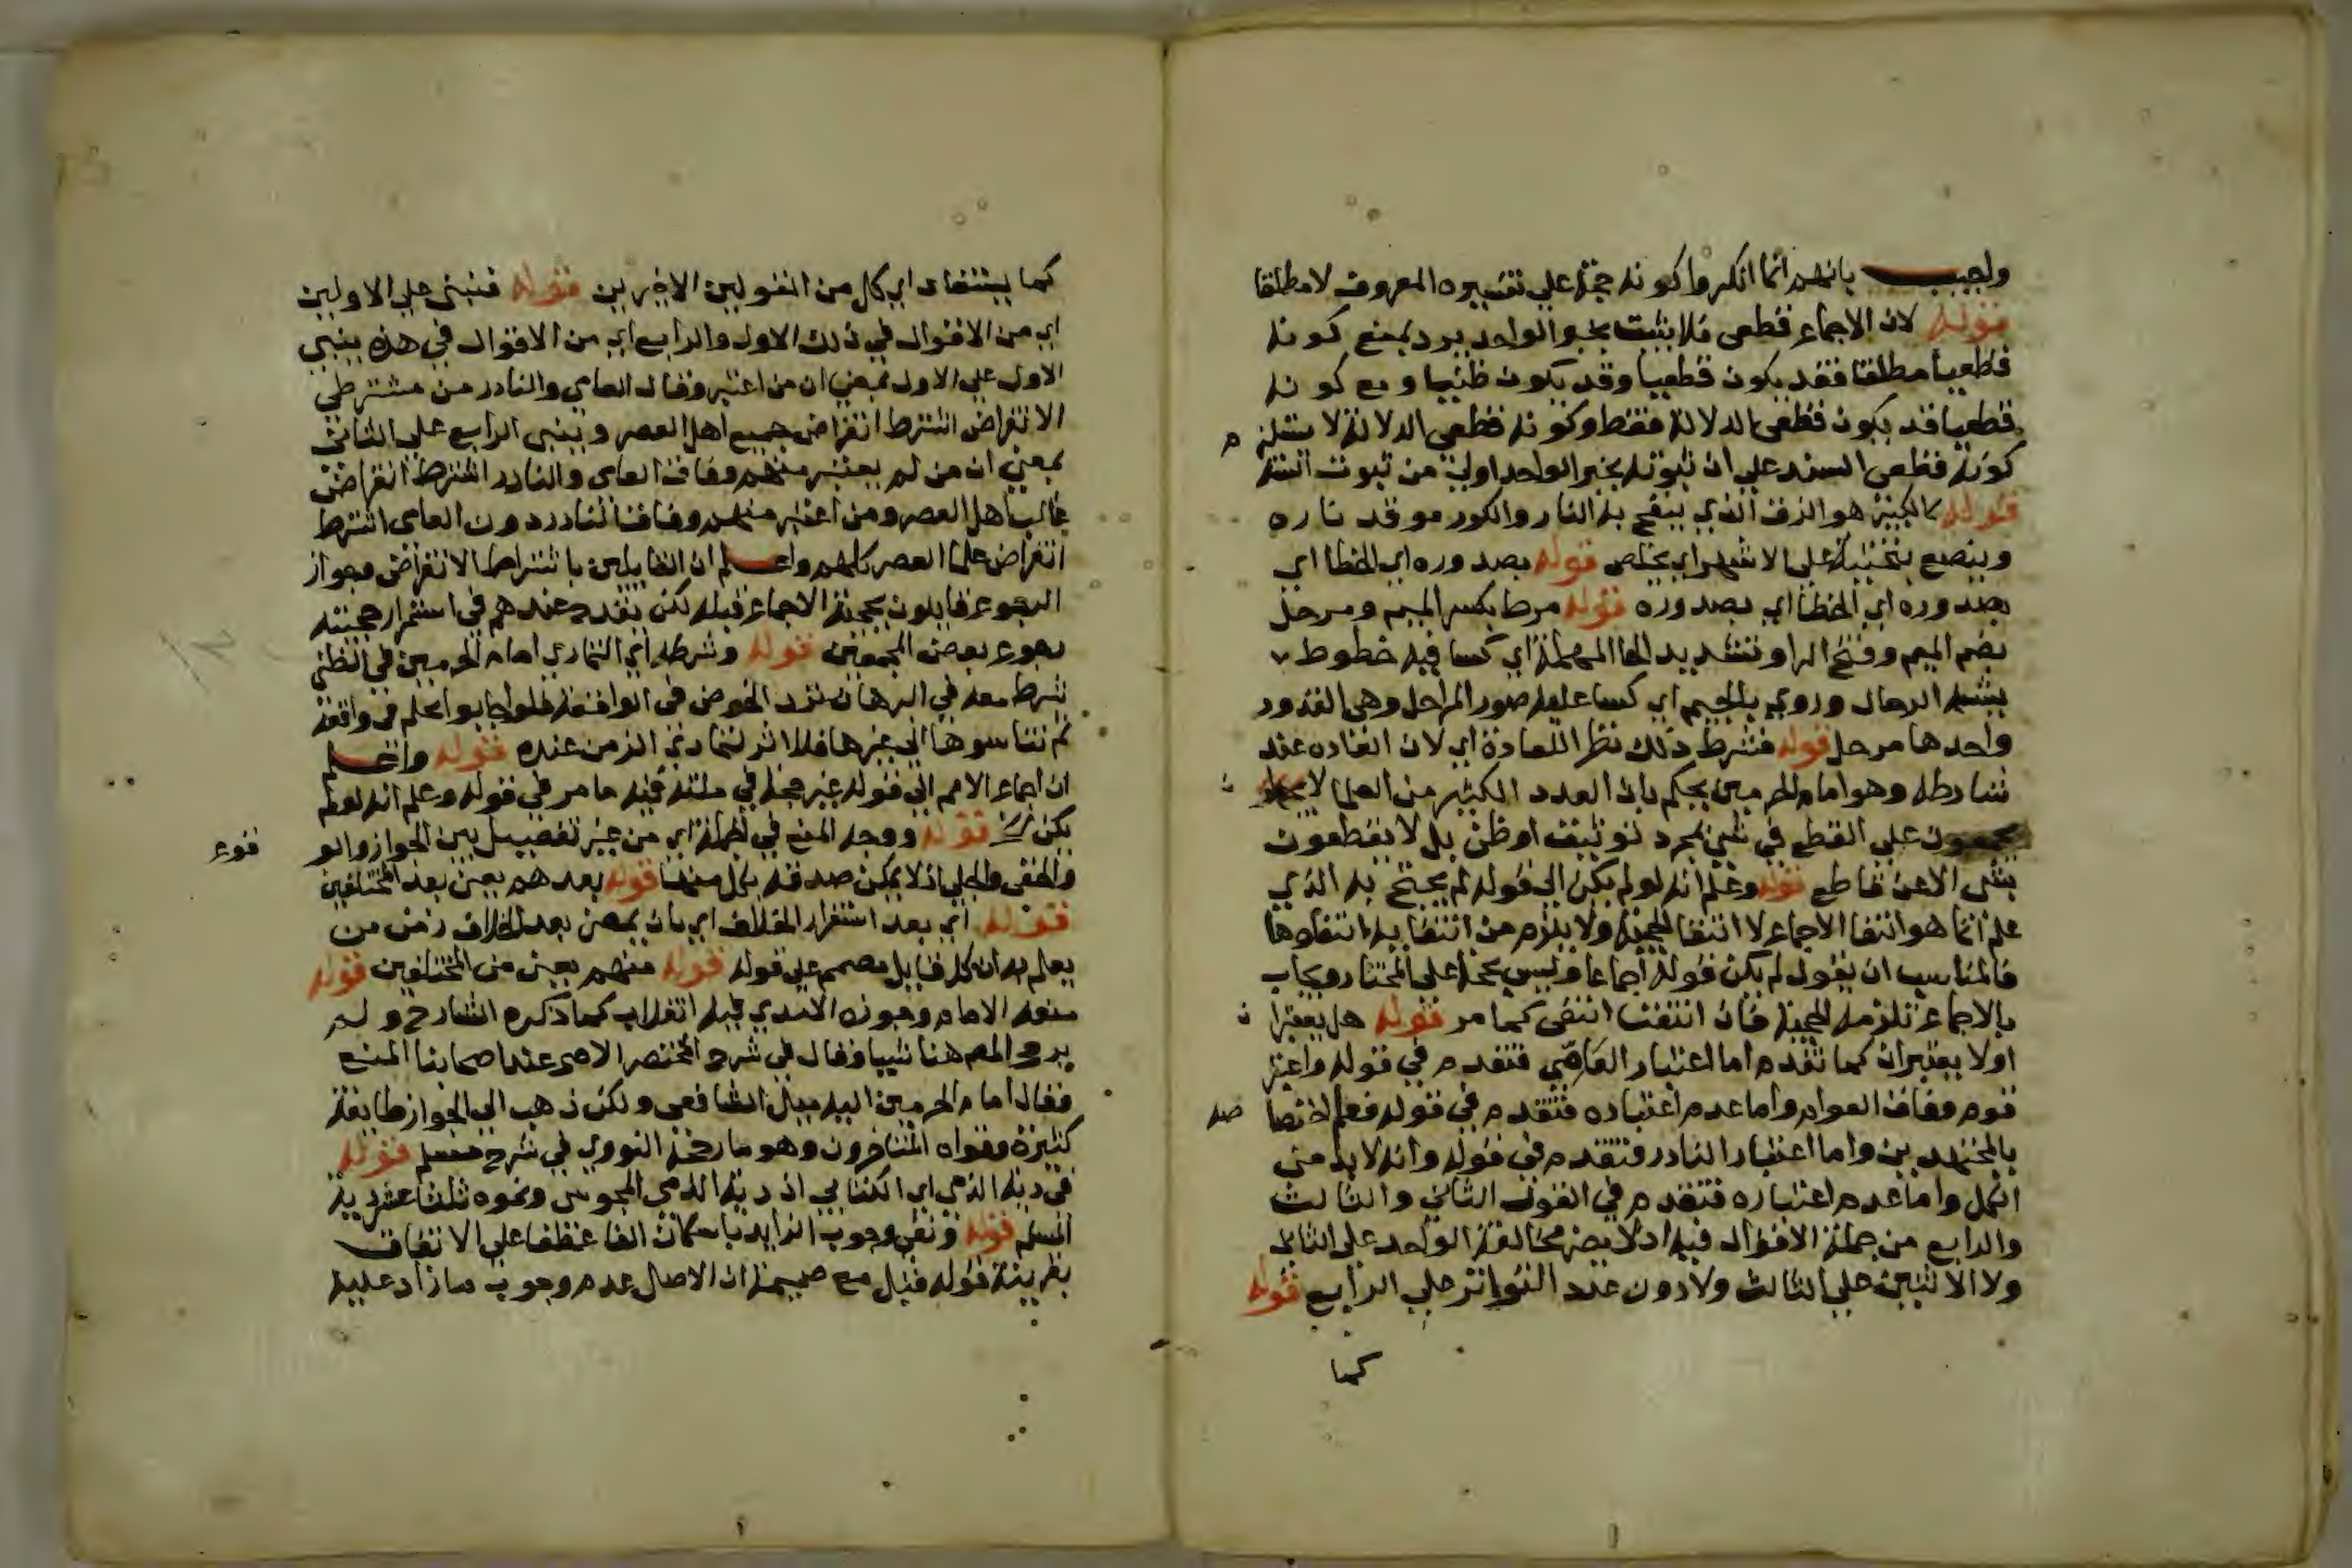 واجيب بانهم انما انكروا كونه حجة علي تفسيره المعروف لا مطلقا
قوله لان الاجماع قطعى فلا يثبت بخبر الواحد يرد بمنع كونه
قطعيا مطلقا فقد يكون قطعيا وقد يكون ظنيا ومع كونه
قطعيا قد يكون قطعى الدلالة فقط وكونه قطعى الدلالة لا يستلزم
كونه قطعى السند على ان ثبوته بخبر الواحد اولى من ثبوت السنة
قوله كالكير هو الزق الذي ينفخ به النار والكور موقد ناره
وينصع بتحتية على الاشهر اي يخلص قوله بصدوره اي الخطا اي
بصدوره اي الخطا اي بصدوره قوله مرط بكسر الميم ومرحل
بضم الميم وفتح الرا وتشديد الحا المهملة اي كسا فيه خطوط
يشبه الرحال وروي بالجيم اي كسا عليه صور المراجل وهى القدور
واحدها مرجل قوله فشرط ذلك نظرا للعادة اي لان العاده عند
شارطه وهو امام الحرمين يحكم بان العدد الكثير من العلما لا
يجمعون على القطع في شي بمجرد توثيق او ظن بل لا يقطعون
بشى الا عن قاطع قوله وعلم انه لو لم يكن الى قوله لم يحتج به الذي
علم انما هو انتفا الاجماع لا انتفا الحجية ولا يلزم من انتفايه انتفاوها
فالمناسب ان يقول لم يكن قوله اجماعا وليس بحجة على المختار ويجاب
بالاجماع تلزمه الحجية فان انتفت انتفى كما مر قوله هل يعتبران
اولا يعتبران كما تقدم اما اعتبار العامي فتقدم في قوله واعتبر
قوم وفاق العوام واما عدم اعتباره فتقدم في قوله فعلم اختصاصه
بالمجتهدين واما اعتبار النادر فتقدم في قوله وانه لا بد من
الكل واما عدم اعتباره فتقدم في القول الثاني والثالث
والرابع من جملة الاقوال فيه اذ لا يضر مخالفة الواحد على الثاني
ولا الاثنين على الثالث ولا دون عدد التواتر على الرابع قوله
كما
كما يستفاد اي كل من القولين الاخيرين قوله فنبنى على الاولين
اي من الاقوال في ذلك الاول والرابع اي من الاقوال في هذه ينبنى
الاول على الاول بمعنى ان من اعتبر وفاق العامي والنادر من مشترطي
الانقراض اشترط انقراض جميع اهل العصر وينبنى الرابع على الثاني
بمعنى ان من لم يعتبر منهم وفاق العامى والنادر اشترط انقراض
غالب اهل العصر ومن اعتبر منهم وفاق النادر دون العامى اشترط
انقراض علما العصر كلهم واعلم ان القايلين باشتراط الانقراض وجواز
الرجوع قايلون بحجية الاجماع قبله لكن يقدح عندهم في استمرار حجيته
رجوع بعض المجمعين قوله وشرطه اي التمادي امام الحرمين في الظنى
شرط معه في البرهان تردد الخوض في الواقعة فلو اجابوا بحكم في واقعة
ثم تناسوها الى غيرها فلا اثر لتمادي الزمن عنده قوله واعلم
ان اجماع الامم الى قوله غير حجة في ملته فيه ما مر في قوله وعلم انه لو لم
يكن قوله ووجه المنع في الجملة اي من غير تفصيل بين الجواز والوقوع
والخفى والجلي اذ لا يمكن صدقه بكل منهما قوله بعدهم يعنى بعد المختلفين
قوله اي بعد استقرار الخلاف اي بان يمضى بعد الخلاف زمن من
يعلم به ان كل قايل مصمم على قوله قوله منهم يعنى من المختلفين قوله
منعه الامام وجوزه الامدي قيل انقلاب كما ذكره الشارح ولم
يرجح المص هنا شييا وقال في شرح المختصر الاصح عند اصحابنا المنع
فقال امام الحرمين اليه ميل الشافعى ولكن ذهب الى الجواز طايفة
كثيرة وقواه المتاخرون وهو ما رجحه النووي في شرح مسلم قوله
في دية الذمي اي الكتابي اذ دية الذمي المجوسى ونحوه ثلثا عشر دية
المسلم قوله ونفي وجوب الزايد باسكان الفا عطفا على الاتفاق
بقرينة قوله قبل مع ضميمة ان الاصل عدم وجوب ما زاد عليه